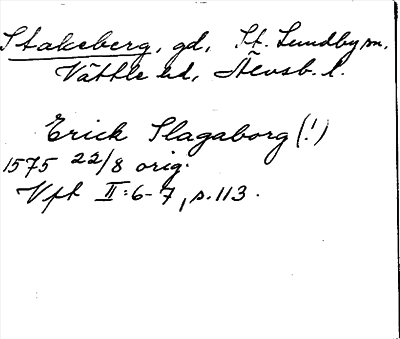 Stakeberg, gd, St. Lundby sn,
Vättle hd, Älvsb. l.
Erick Slagaborg (!)
1575 22/8 orig.
Vft II:6-7, s. 113.